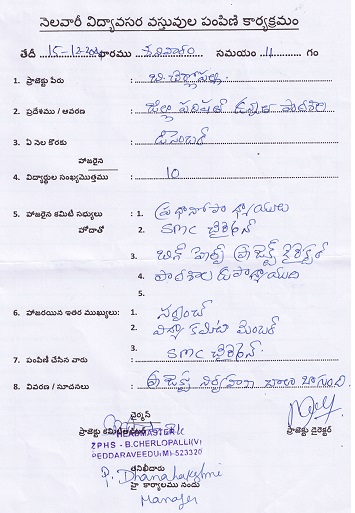 నెలవారీ విద్యావసర వస్తువుల పంపిణి కార్యక్రమం
తేదీ 15-12-20 వారము శనివారం సమయం 11 గం
1. ప్రాజెక్టు పేరు : బి. చెర్లోపల్లి.
2. ప్రదేశము / ఆవరణ : జిల్లా పరిషత్ ఉన్నత పాఠశాల
3. ఏ నెల కొరకు : డిసెంబర్
హాజరైన
4. విద్యార్థుల సంఖ్యమొత్తము : 10
5. హాజరైన కమిటీ సభ్యులు : 1. ప్రధానోపాధ్యాయులు
హోదాతో 2. SMC చైర్మెన్
3. ప్రాజెక్ట్ డైరెక్టర్
4. పాఠశాల ఉపాధ్యాయుడు
5.
6. హాజరయిన ఇతర ముఖ్యులు: 1. సర్పంచ్
2. విద్యా కమిటీ మెంబర్
7. పంపిణి చేసిన వారు : 3. SMC చైర్మెన్.
8. వివరణ / సూచనలు : ప్రాజెక్ట్ నిర్వహణ చాలా బాగుంది.
చైర్మన్
ప్రాజెక్టు కమిటీ ప్రాజెక్టు డైరెక్టర్
HEADMASTER
ZPHS - B.CHERLOPALLI(V)
PEDDARAVEEDU(M)-523320
తనిఖీదారు
P. Dhanalakshmi
హై కార్యాలము నందు
Manager